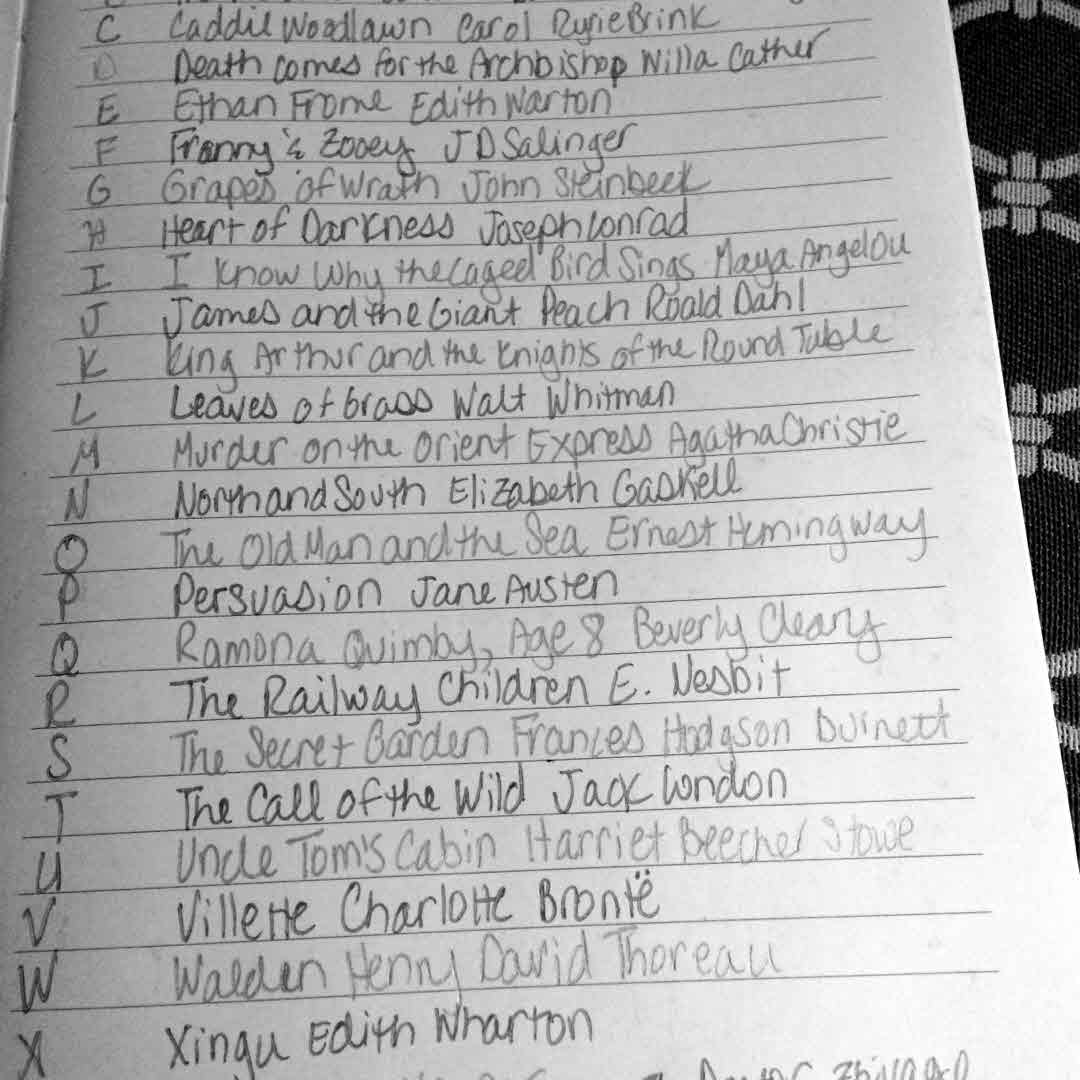 C Caddie Woodlawn Carol Ryrie Brink
D Death comes for the Archbishop Willa Cather
E Ethan Frome Edith Warton
F Franny & Zooey J D Salinger
G Grapes of Wrath John Steinbeck
H Heart of Darkness Joseph Conrad
I I Know Why the Caged Bird Sings Maya Angelou
J James and the Giant Peach Roald Dahl
K King Arthur and the Knights of the Round Table
L Leaves of Grass Walt Whitman
M Murder on the Orient Express Agatha Christie
N North and South Elizabeth Gaskell
O The Old Man and the Sea Ernest Hemingway
P Persuasion Jane Austen
Q Ramona Quimby, Age 8 Beverly Cleary
R The Railway Children E. Nesbit
S The Secret Garden Frances Hodgson Burnett
T The Call of the Wild Jack London
U Uncle Tom's Cabin Harriet Beecher Stowe
V Villette Charlotte Brontë
W Walden Henry David Thoreau
X Xingu Edith Wharton
Doctor Zhivago